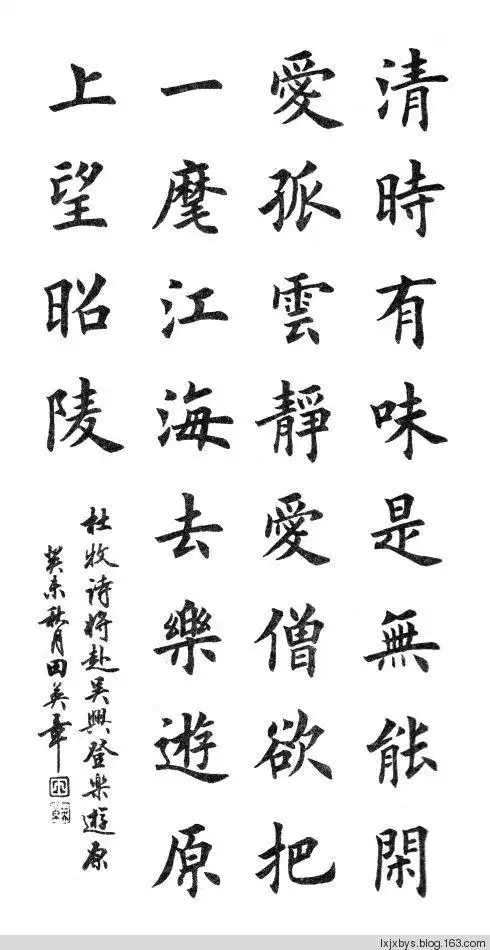 清時有味是無能閑
愛孤雲靜愛僧欲把
一麾江海去樂遊原
上望昭陵
杜牧诗将赴吴興登樂遊原
癸未秋月田英章
lxjxbys.blog.163.com